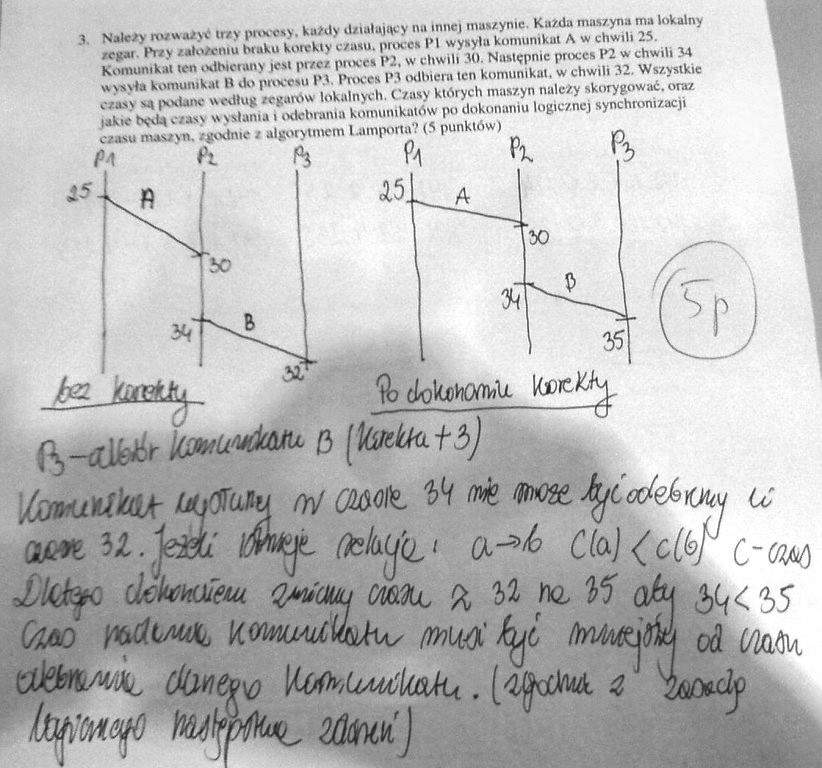 3. Należy rozważyć trzy procesy, każdy działający na innej maszynie. Każda maszyna ma lokalny
zegar. Przy założeniu braku korekty czasu, proces P1 wysyła komunikat A w chwili 25.
Komunikat ten odbierany jest przez proces P2, w chwili 30. Następnie proces P2 w chwili 34
wysyła komunikat B do procesu P3. Proces P3 odbiera ten komunikat, w chwili 32. Wszystkie
czasy są podane według zegarów lokalnych. Czasy których maszyn należy skorygować, oraz
jakie będą czasy wysłania i odebrania komunikatów po dokonaniu logicznej synchronizacji
czasu maszyn, zgodnie z algorytmem Lamporta? (5 punktów)
P1 P2 P3 P1 P2 P3
25 A 25 A
30 30
34 B 34 B
32 35
5p
bez korekty Po dokonaniu korekty
P3 – odbiór komunikatu B (korekta + 3)
Komunikat wysłany w czasie 34 nie może być odebrany w
czasie 32. Jeżeli istnieje relacja: a → b C(a) < C(b) C - czas
Dlatego dokonałem zmiany czasu z 32 na 35 aby 34 < 35
Czas nadania komunikatu musi być mniejszy od czasu
odebrania danego komunikatu. (zgodnie z zasadą
logicznego następstwa zdarzeń)